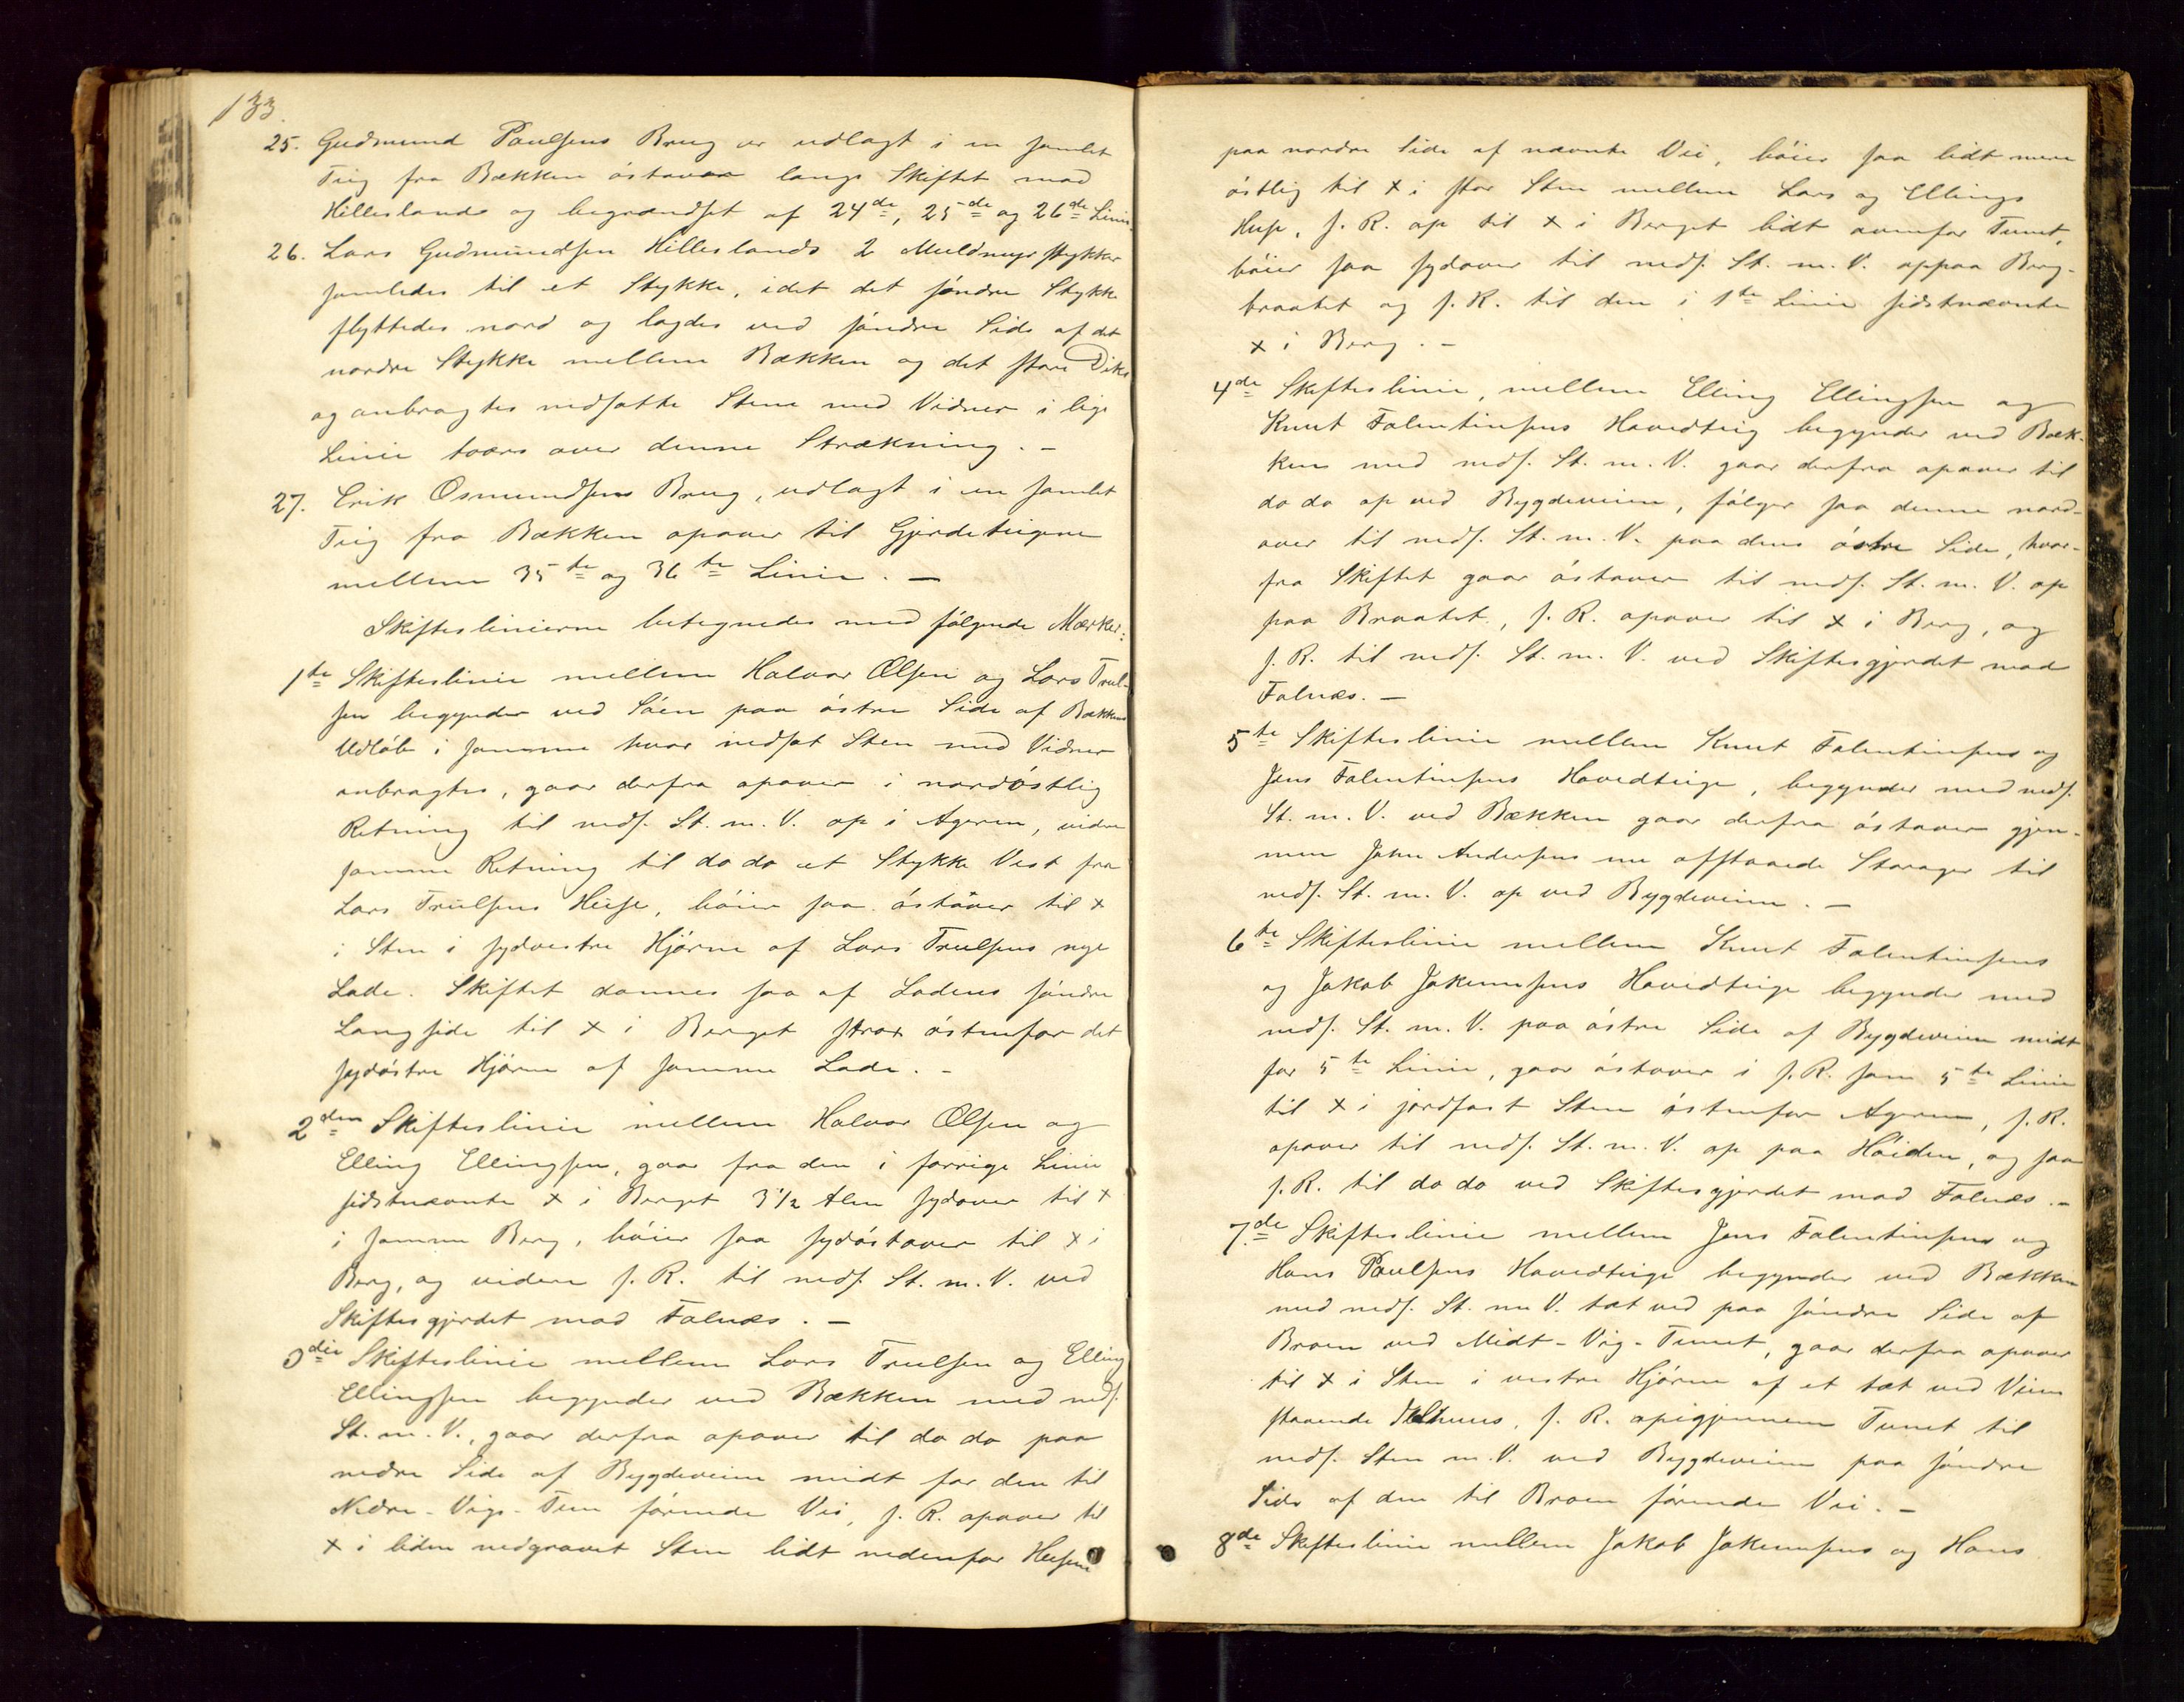 133.
25. Gudmund Paulsens Brug er udlagt i en samlet
Teig fra Bækken østover langs Skiftet mod
Hillesland og begrændset af 24de, 25de og 26de Linie.
26. Lars Gudmundsen Hilleslands 2 Muldmyrstykker
samledes til et Stykke, idet det søndre Stykke
flyttedes nord og lagdes ved søndre Side af det
nordre Stykke mellem Bækken og det store Dike
og anbragtes nedsatte Stene med Vidner i lige
Linie tvers over denne Strækning. -
27. Erik Osmundsens Brug, udlagt i en samlet
Teig fra Bækken opover til Gjerdeteigene
mellem 35te og 36te Linie. -
Skifteslinierne betegnedes med følgende Mærker:
1te Skifteslinie mellem Halvor Olsen og Lars Trul-
sen begynder ved Søen paa østre Side af Bækkens
Udløb i samme hvor nedsat Sten med Vidner
anbragtes, gaar derfra opover i nordøstlig
Retning til neds. St. m. V. op i Ageren, videre
samme Retning til do do et Stykke Vest fra
Lars Trulsens Huse, bøier saa østover til x
i Sten i sydvestre Hjørne af Lars Trulsens nye
Lade. Skiftet dannes saa af Ladens søndre
Langside til x i Berget strax østenfor det
sydøstre Hjørne af samme Lade. -
2den Skifteslinie mellem Halvor Olsen og
Elling Ellingsen, gaar fra den i forrige Linie
sidstnævnte x i Berget 3 1/2 Alen sydover til x
i samme Berg, bøier saa sydøstover til x i
Berg, og videre s. R. til neds. St. m. V. ved
Skiftesgjerdet mod Falnæs. -
3die Skifteslinie mellem Lars Trulsen og Elling
Ellingsen begynder ved Bækken med neds.
St. m. V., gaar derfra opover til do do paa
nedre Side af Bygdeveien midt for den til
Nedre-Vigs-Tun førende Vei, s. R. opover til
x i liden nedgravet Sten lidt nedenfor Husene
paa nordre Side af nævnte Vei, bøier saa lidt mere
østlig til x i stor Sten mellem Lars og Ellings
Huse, s. R. op til x i Berget lidt ovenfor Tunet,
bøier saa sydover til neds. St. m. V. oppaa Berg-
braatet og s. R. til den i 1te Linie sidstnævnte
x i Berg. -
4de Skifteslinie, mellem Elling Ellingsen og
Knut Falentinsens Hovedteig begynder ved Bæk-
ken med neds. St. m. V. gaar derfra opover til
do do op ved Bygdeveien, følger saa denne nord-
over til neds. St. m. V. paa dens østre Side, hvor-
fra Skiftet gaar østover til neds. St. m. V. op
paa Braatet, s. R. opover til x i Berg, og
s. R. til neds. St. m. V. ved Skiftesgjerdet mod
Falnæs. -
5te Skifteslinie mellem Knut Falentinsens og
Jens Falentinsens Hovedteige, begynder med neds.
St. m. V. ved Bækken gaar derfra østover gjen-
nem John Andersens nu afstaaede Storager til
neds. St. m. V. op ved Bygdeveien. -
6te Skifteslinie mellem Knut Falentinsens
og Jakob Jakemsens Hovedteige begynder med
neds. St. m. V. paa østre Side af Bygdeveien midt
for 5te Linie, gaar østover i s. R. som 5te Linie
til x i jordfast Sten østenfor Ageren, s. R.
opover til neds. St. m. V. op paa Høiden, og saa
s. R. til do do ved Skiftesgjerdet mod Falnæs. -
7de Skifteslinie mellem Jens Falentinsens og
Hans Paulsens Hovedteige begynder ved Bækken
med neds. St. m. V. tæt ved paa søndre Side af
Broen ved Midt-Vig-Tunet, gaar derfra opover
til x i Sten i vestre Hjørne af et tæt ved Veien
staaende Ildhuus, s. R. opigjennem Tunet til
neds. Sten m. V. ved Bygdeveien paa søndre
Side af den til Broen førende Vei. -
8de Skifteslinie mellem Jakob Jakemsens og Hans